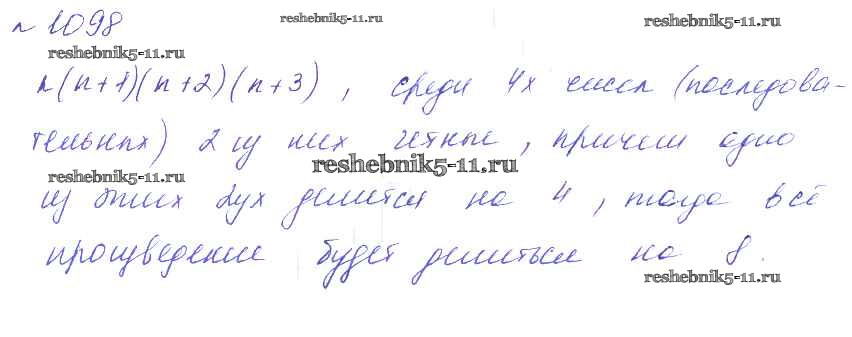 № 1098
reshebnik5-11.ru
reshebnik5-11.ru
reshebnik5-11.ru
n(n+1)(n+2)(n+3), среди 4х чисел (последова-
тельных) 2 из них четные, причем одно
reshebnik5-11.ru
reshebnik5-11.ru
из этих двух делится на 4, тогда всё
произведение будет делиться на 8.
reshebnik5-11.ru